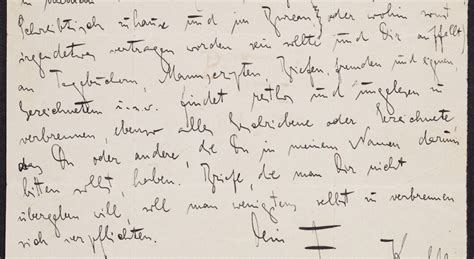 Schreibtisch zuhause und im Bureau, oder wohin sonst
irgendetwas vertragen worden sein sollte und Dir auffällt)
an Tagebüchern, Manuscripten, Briefen, fremden und eignen,
Gezeichnetem u.s.w. findet restlos und ungelesen zu
verbrennen, ebenso alles Geschriebene oder Gezeichnete
das Du oder andere, die Du in meinem Namen darum
bitten sollst, haben. Briefe, die man Dir nicht
übergeben will, soll man wenigstens selbst zu verbrennen
sich verpflichten.
Dein F